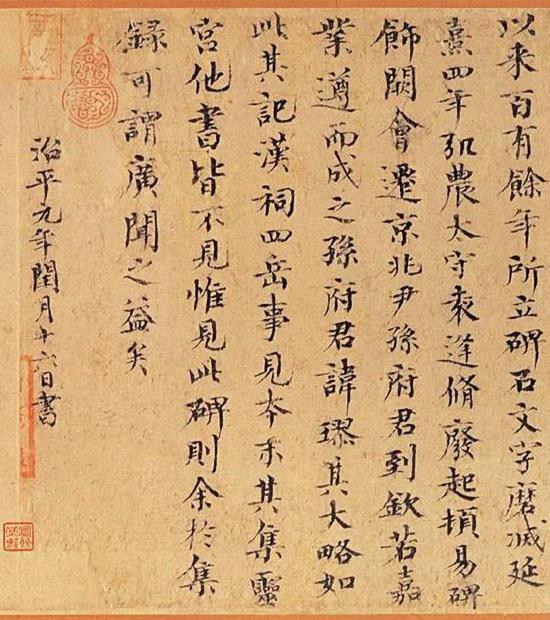 以来百有餘年所立碑石文字磨滅延
熹四年弘農太守袁逢脩廢起頓易碑
飾闕會遷京兆尹孫府君到欽若嘉
業遵而成之孫府君諱璆其大略如
此其記漢祠四岳事見本末其集靈
宮他書皆不見惟見此碑則余於集
録可謂廣聞之益矣
治平元年閏月十六日書